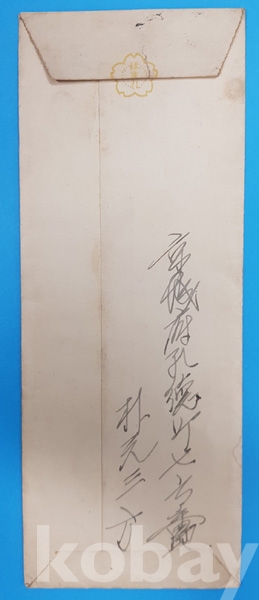 京城府孔德町七六番
朴元三方
kobay